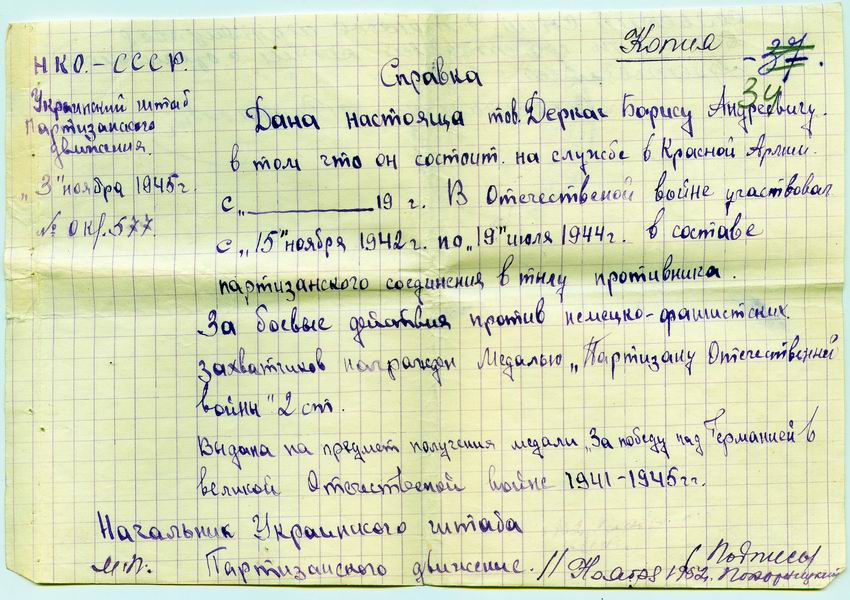 Копия
37.
34
НКО.-СССР.
Украинский штаб
Партизанского
движения.
„3" ноября 1945г.
№ 0кр.577.
Справка
Дана настояща тов. Деркач Борису Андреевичу.
в том что он состоит. на службе в Красной Армии.
с „__________19 г. В Отечественой войне участвовал
с „15" ноября 1942г. по „19" июля 1944г. в составе
партизанского соединения в тылу противника.
За боевые действия против немецко-фашистских.
Захватчиков награжден Медалью „Партизану Отечественней
войны" 2 ст.
Выдана на предмет получения медали „За победу над Германией в
великой Отечественой войне 1941-1945гг.
Начальник Украинского штаба
М.П. Партизанского движение. // (Подписы
Ноября 1952г.